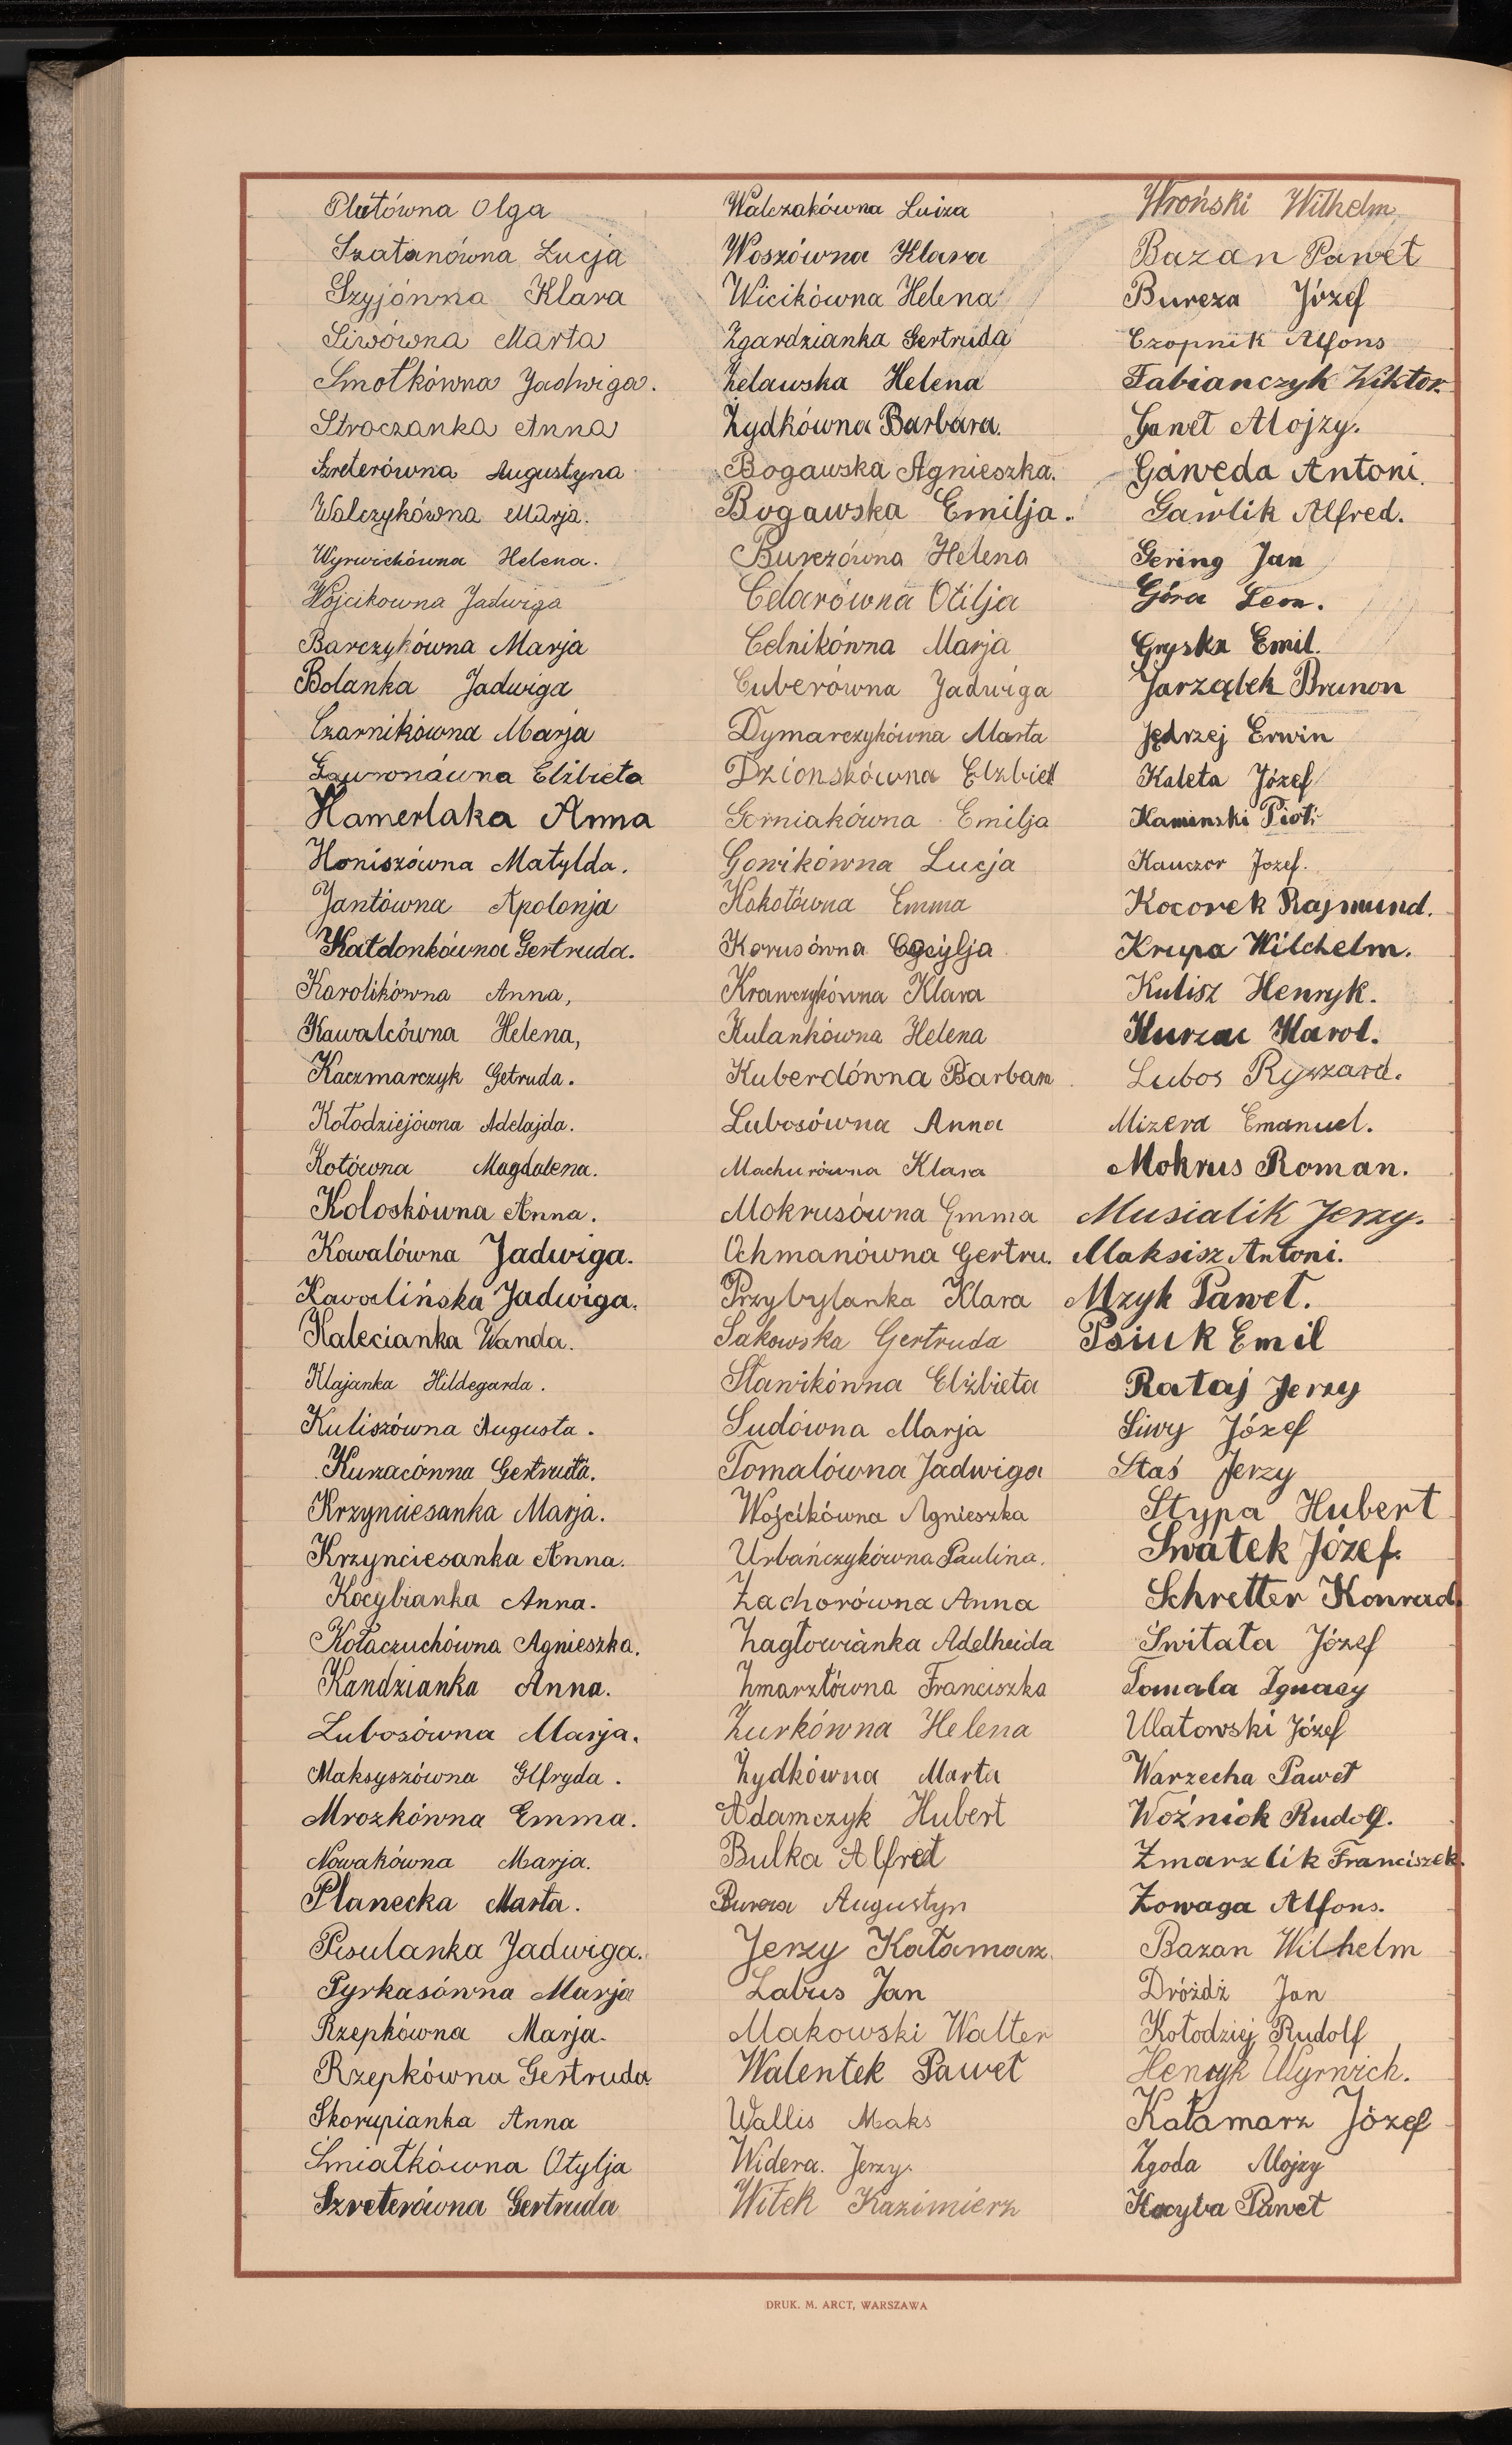 Plutówna Olga
Szatanówna Łucja
Szyjówna Klara
Siwówna Marta
Smołkówna Jadwiga.
Stroczanka Anna
Szreterówna Augustyna
Walczykówna Marja.
Wyrwichówna Helena.
Wójcikowna Jadwiga
Barczykówna Marja
Bolanka Jadwiga
Czarnikówna Marja
Gawronówna Elżbieta
Hamerlaka Anna
Honiszówna Matylda.
Jantówna Apolonja
Katdonkówna Gertruda.
Karolikówna Anna,
Kawalcówna Helena,
Kaczmarczyk Getruda.
Kołodziejówna Adelajda.
Kotówna Magdalena.
Koloskówna Anna.
Kowalówna Jadwiga.
Kawalińska Jadwiga.
Kalecianka Wanda.
Klajanka Hildegarda.
Kuliszówna Augusta.
Kurzacówna Gertruda.
Krzynciesanka Marja.
Krzynciesanka Anna.
Kocybianka Anna.
Kołaczuchówna Agnieszka.
Kandzianka Anna.
Lubosówna Marja.
Maksyszówna Elfryda.
Mrozkówna Emma.
Nowakówna Marja.
Planecka Marta.
Pisulanka Jadwiga.
Pyrkasówna Marja
Rzepkówna Marja.
Rzepkówna Gertruda
Skorupianka Anna
Śmiałkówna Otylja
Szreterówna Gertruda
Walczakówna Luiza
Woszówna Klara
Wicikówna Helena
Zgardzianka Gertruda
Żelawska Helena
Żydkówna Barbara.
Bogawska Agnieszka.
Bogawska Emilja.
Burezówna Helena
Celarówna Otilja
Celnikówna Marja
Cuberówna Jadwiga
Dymarczykówna Marta
Dzionskówna Elżbiet
Gorniakówna Emilja
Gowikówna Łucja
Kokotówna Emma
Korusówna Cecylja
Krawczykówna Klara
Kulankówna Helena
Kuberdówna Barbara
Lubosówna Anna
Machurówna Klara
Mokrusówna Emma
Ochmanówna Gertru.
Przybylanka Klara
Sakowska Gertruda
Sławikówna Elżbieta
Sudówna Marja
Tomalówna Jadwiga
Wójcikówna Agnieszka
Urbańczykówna Paulina.
Zachorówna Anna
Zagłowianka Adelheida
Zmarzłówna Franciszka
Żurkówna Helena
Żydkówna Marta
Adamczyk Hubert
Bulka Alfred
Bureza Augustyn
Jerzy Kałamarz.
Labus Jan
Makowski Walter
Walentek Paweł
Wallis Maks
Widera. Jerzy.
Witek Kazimierz
Wroński Wilhelm
Bazan Paweł
Bureza Józef
Czopnik Alfons
Fabianczyk Wiktor.
Gaweł Alojzy.
Gaweda Antoni.
Gawlik Alfred.
Gering Jan
Góra Leon.
Gryska Emil.
Jarząbek Brunon
Jędrzej Erwin
Kaleta Józef
Kaminski Piotr
Kauczor Jozef.
Kocorek Rajmund.
Krupa Wilchelm.
Kulisz Henryk.
Kurzac Karol.
Lubos Ryszard.
Mizera Emanuel.
Mokrus Roman.
Musialik Jerzy.
Maksisz Antoni.
Mzyk Paweł.
Psiuk Emil
Rataj Jerzy
Siwy Józef
Staś Jerzy
Stypa Hubert
Swatek Józef.
Schretter Konrad.
Świtała Józef
Tomala Ignacy
Ulatowski Józef
Warzecha Paweł
Woźniok Rudolf.
Zmarzlik Franciszek.
Żowaga Alfons.
Bazan Wilhelm
Dróżdż Jan
Kołodziej Rudolf
Henryk Wyrwich.
Kałamarz Józef
Zgoda Alojzy
Kocyba Paweł
DRUK. M. ARCT, WARSZAWA